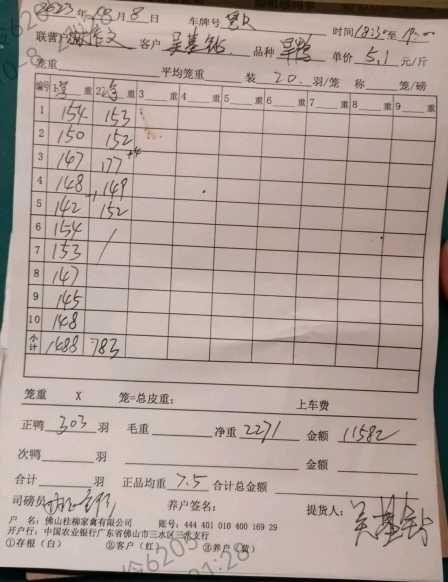 2023年10月8日 车牌号 时间18:30至
联营户 文 客户 吴基钻 品种 旱鸭 单价 5.1 元/斤
笼重 平均笼重 装 20 羽/笼 称 笼/磅
编号 1 重 2 重 3 重 4 重 5 重 6 重 7 重 8 重 9 重
1 154 153
2 150 152
3 147 177
4 148 149
5 142 152
6 154 /
7 153
8 147
9 145
10 148
合计 1488 783
笼重 X 笼=总皮重: 上车费
正鸭 303 羽 毛重 净重 2271 金额 11582
次鸭 羽 金额
合计 羽 正品均重 7.5 合计总金额
司磅员 养户签名: 提货人: 吴基钻
户 名:佛山桂柳家禽有限公司 账号:444 401 010 400 169 29
开户行:中国农业银行广东省佛山市三水区三水支行
①存根(白) ②客户(红) ③养户(黄)